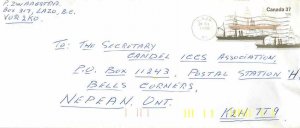 P. ZWAAGSTRA
BOX 317, LAZO, B.C.
V0R 2K0
Canada 37
TO: THE SECRETARY
CANDEL ICCS ASSOCIATION,
P.O. BOX 11243, POSTAL STATION H
BELLS CORNERS,
NEPEAN, ONT.
K2H 7T9